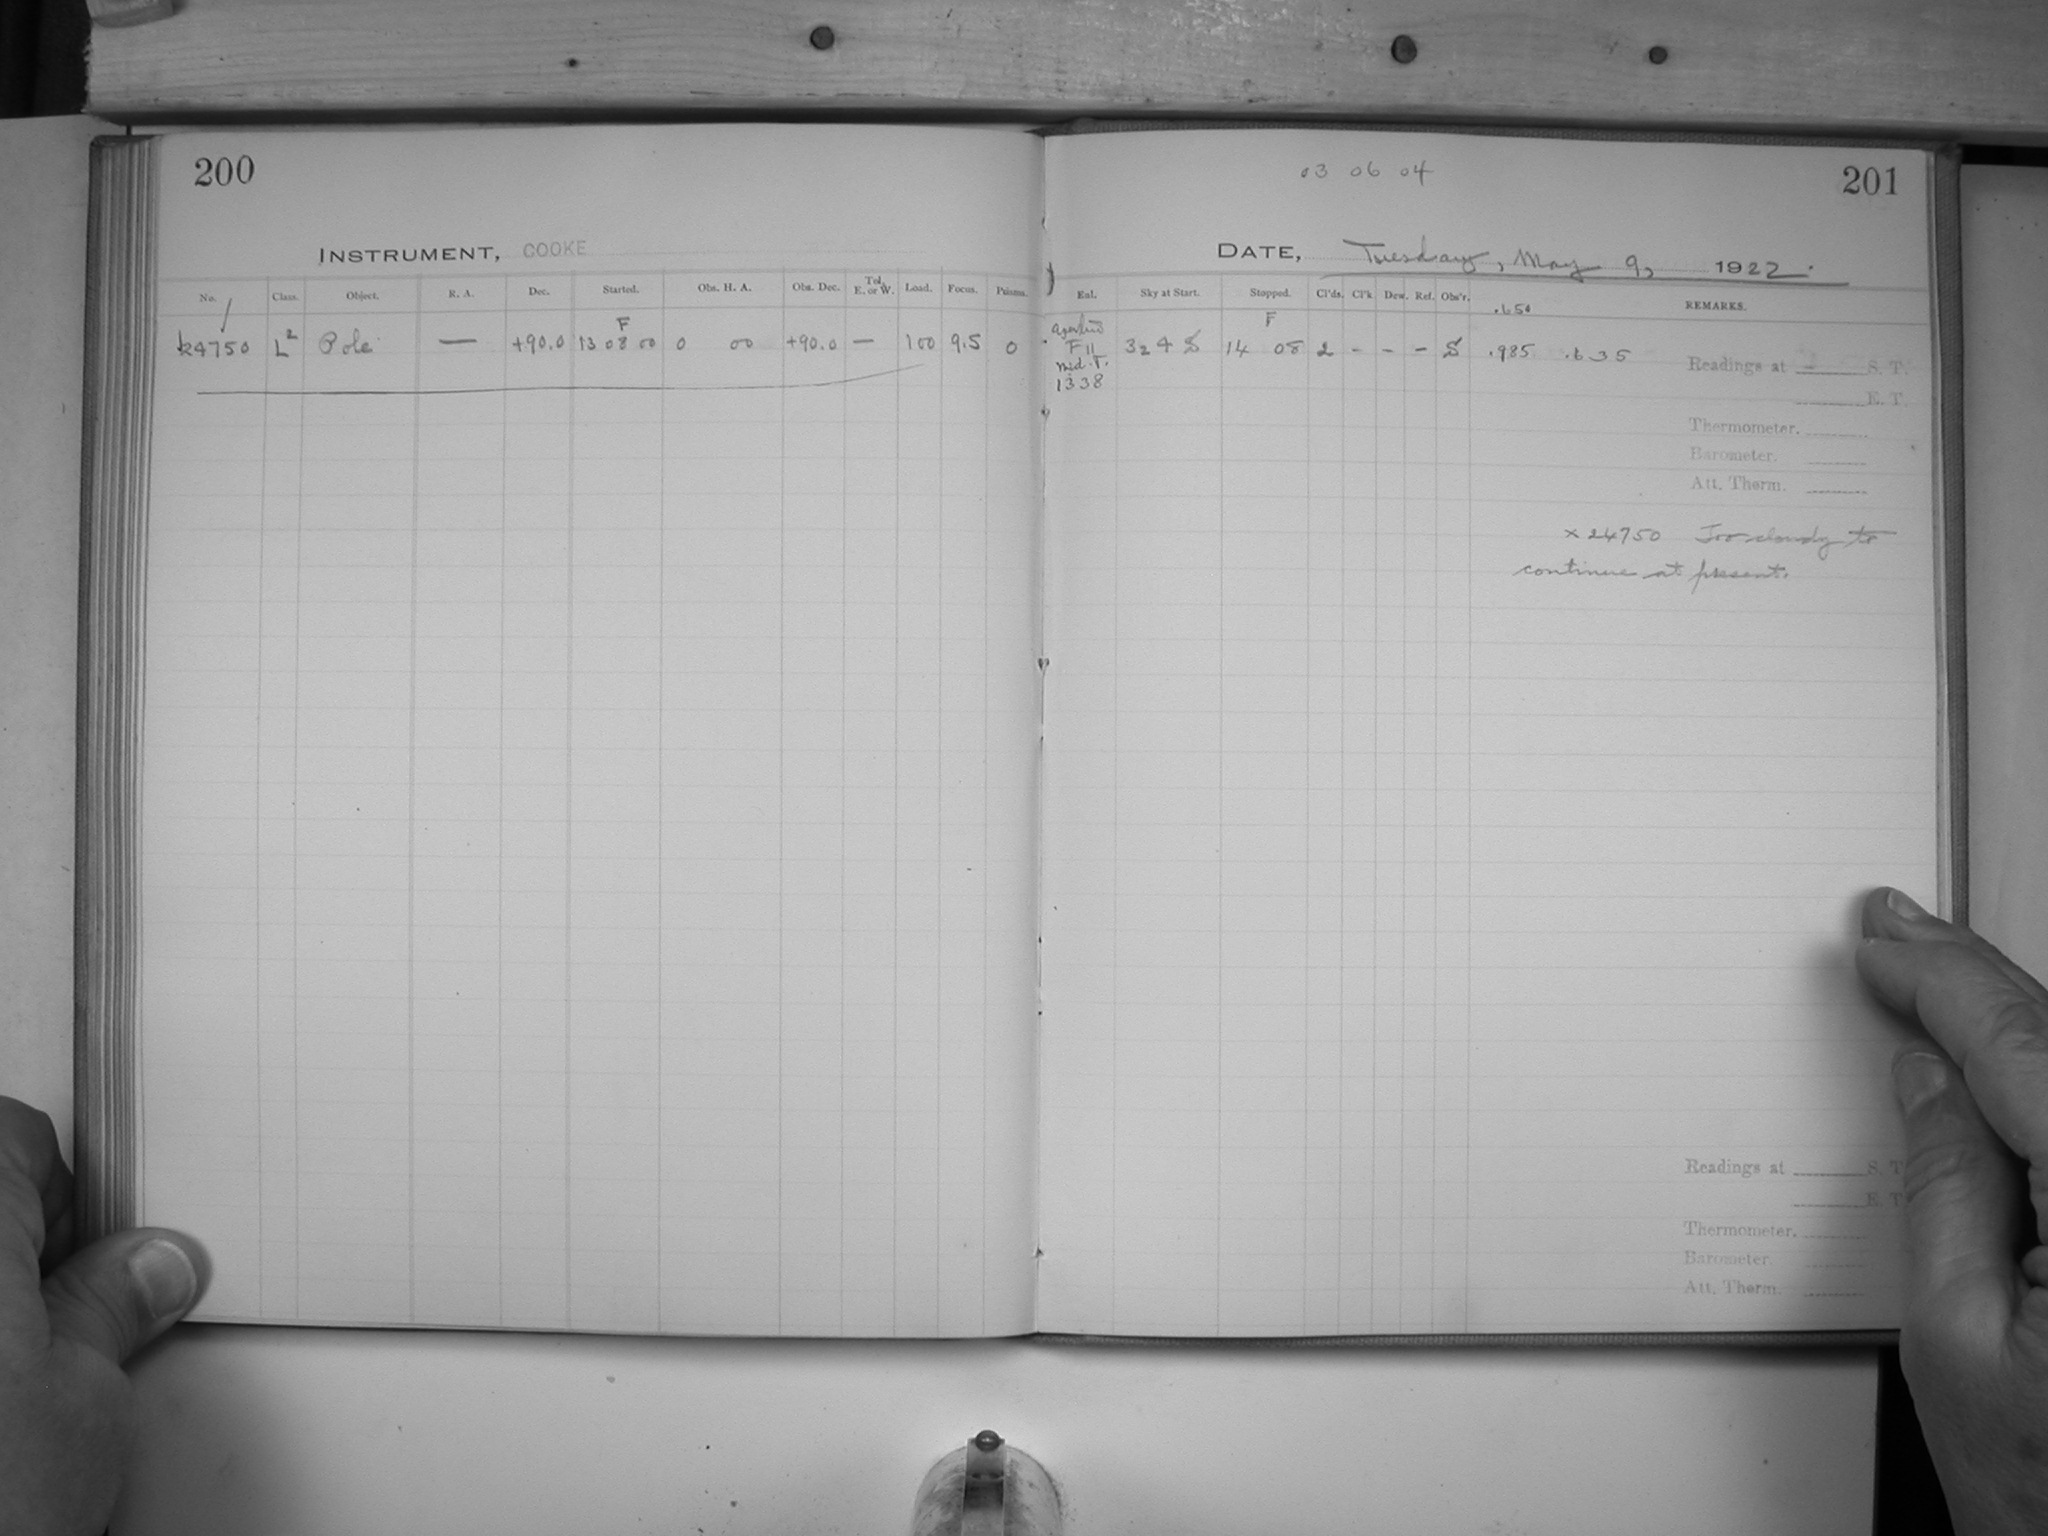 200
INSTRUMENT, COOKE
No. Class. Object. R. A. Dec. Started. Obs. H. A. Obs. Dec. Tel. E. or W. Load. Focus. Prisms.
24750 L2 Pole — +90.0 F 13 08 00 0 00 +90.0 — 100 9.5 0
03 06 04
201
DATE, Tuesday, May 9, 1922.
Enl. Sky at Start. Stopped. Cl'ds. Cl'k. Dew. Ref. Obs'r. REMARKS.
.650
F 11 32 4 S F 14 08 2 - - - S .985 .635
mid. T.
1338
Readings at S. T.
E. T.
Thermometer.
Barometer.
Att. Therm.
x 24750 Too cloudy to
continue at present.
Readings at S. T.
E. T.
Thermometer.
Barometer.
Att. Therm.